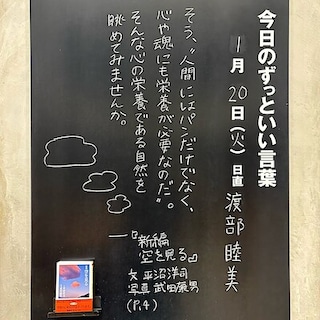 今日のずっといい言葉
1月20日(火)日直 渡部睦美
そう、“人間にはパンだけでなく、
心や魂にも栄養が必要なのだ”。
そんな心の栄養である自然を
眺めてみませんか。
―『新編
空を見る』
文 平沼洋司
写真 武田康男
(P.4)